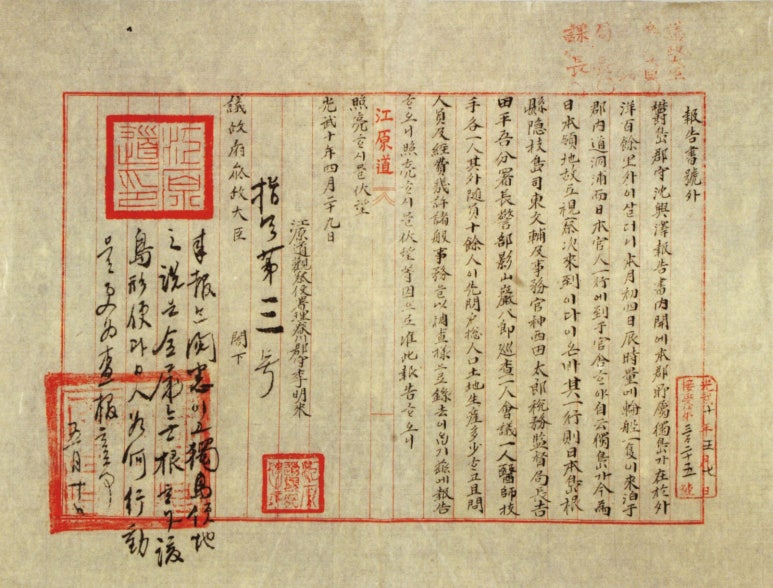 課長
報告書號外
欝島郡守沈興澤報告書內開에本郡所屬獨島가在於外
洋百餘里外이살더니本月初四日辰時量에輪船一隻이來泊于
郡內道洞浦而日本官人一行에到于官舍ᄒᆞ야自云獨島가今爲
日本領地故로視察次來到이다이온바其一行則日本島根
縣隱技島司東文輔及事務官神西田太郎稅務監督局長吉
田平吾分署長警部影山巖八郎巡查一人會議一人醫師技
手各一人其外隨員十餘人이先問戶摠人口土地生產多少ᄒᆞ고且問
人員及經費幾許諸般事務ᄒᆞ고以調查樣으로錄去이ᄋᆞᆸ기玆에報告
ᄒᆞ오니照亮ᄒᆞ시믈伏望等因으로准此報告ᄒᆞ오니
江原道
照亮ᄒᆞ시믈伏望
光武十年四月二十九日
江原道觀察使署理春川郡守李明來
議政府參政大臣 閣下
指令第三号
來報는閱悉이고獨島領地
之說은全屬無根하나該
島形便과日人如何行動
을更爲查報할事
五月十日
江原道印
光武十年五月七日
接受第